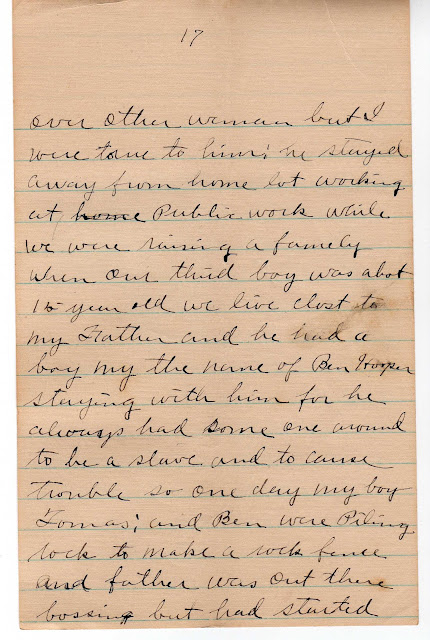 17
over other woman but I
were tone to him; he stayed
away from home lot working
at home Public work while
we were raising a famely
when our third boy was abot
15 year old we live clost to
my Father and he had a
boy my the name of Ben Hooper
staying with him for he
always had some one around
to be a slave and to cause
trouble so one day my boy
Tomas; and Ben were Piling
rock to make a rock fence
and father was out there
bossing but had started